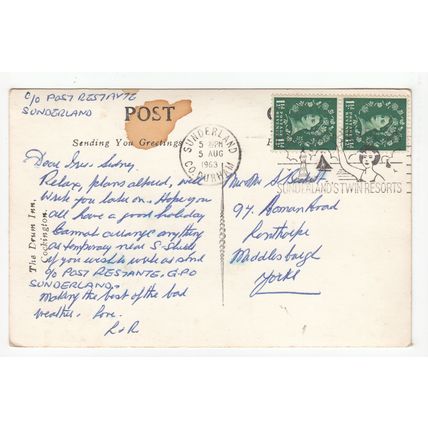 c/o POST RESTANTE
SUNDERLAND
POST
C
Sending You Greetings
SUNDERLAND
5 PM
5 AUG
1963
CO. DURHAM
SUNDERLAND'S TWIN RESORTS
The Drum Inn,
Cockington.
Dear Sidney,
Relax, plans altered, will
write you later on. Hope you
all have a good holiday
Cannot arrange anything
as temporary near S. Shields
if you wish to write us send
c/o POST RESTANTE, G.P.O
SUNDERLAND.
Making the best of the bad
weather. Love
R
Mr Mrs S
97, Roman Road
Linthorpe
Middlesbrough
Yorks